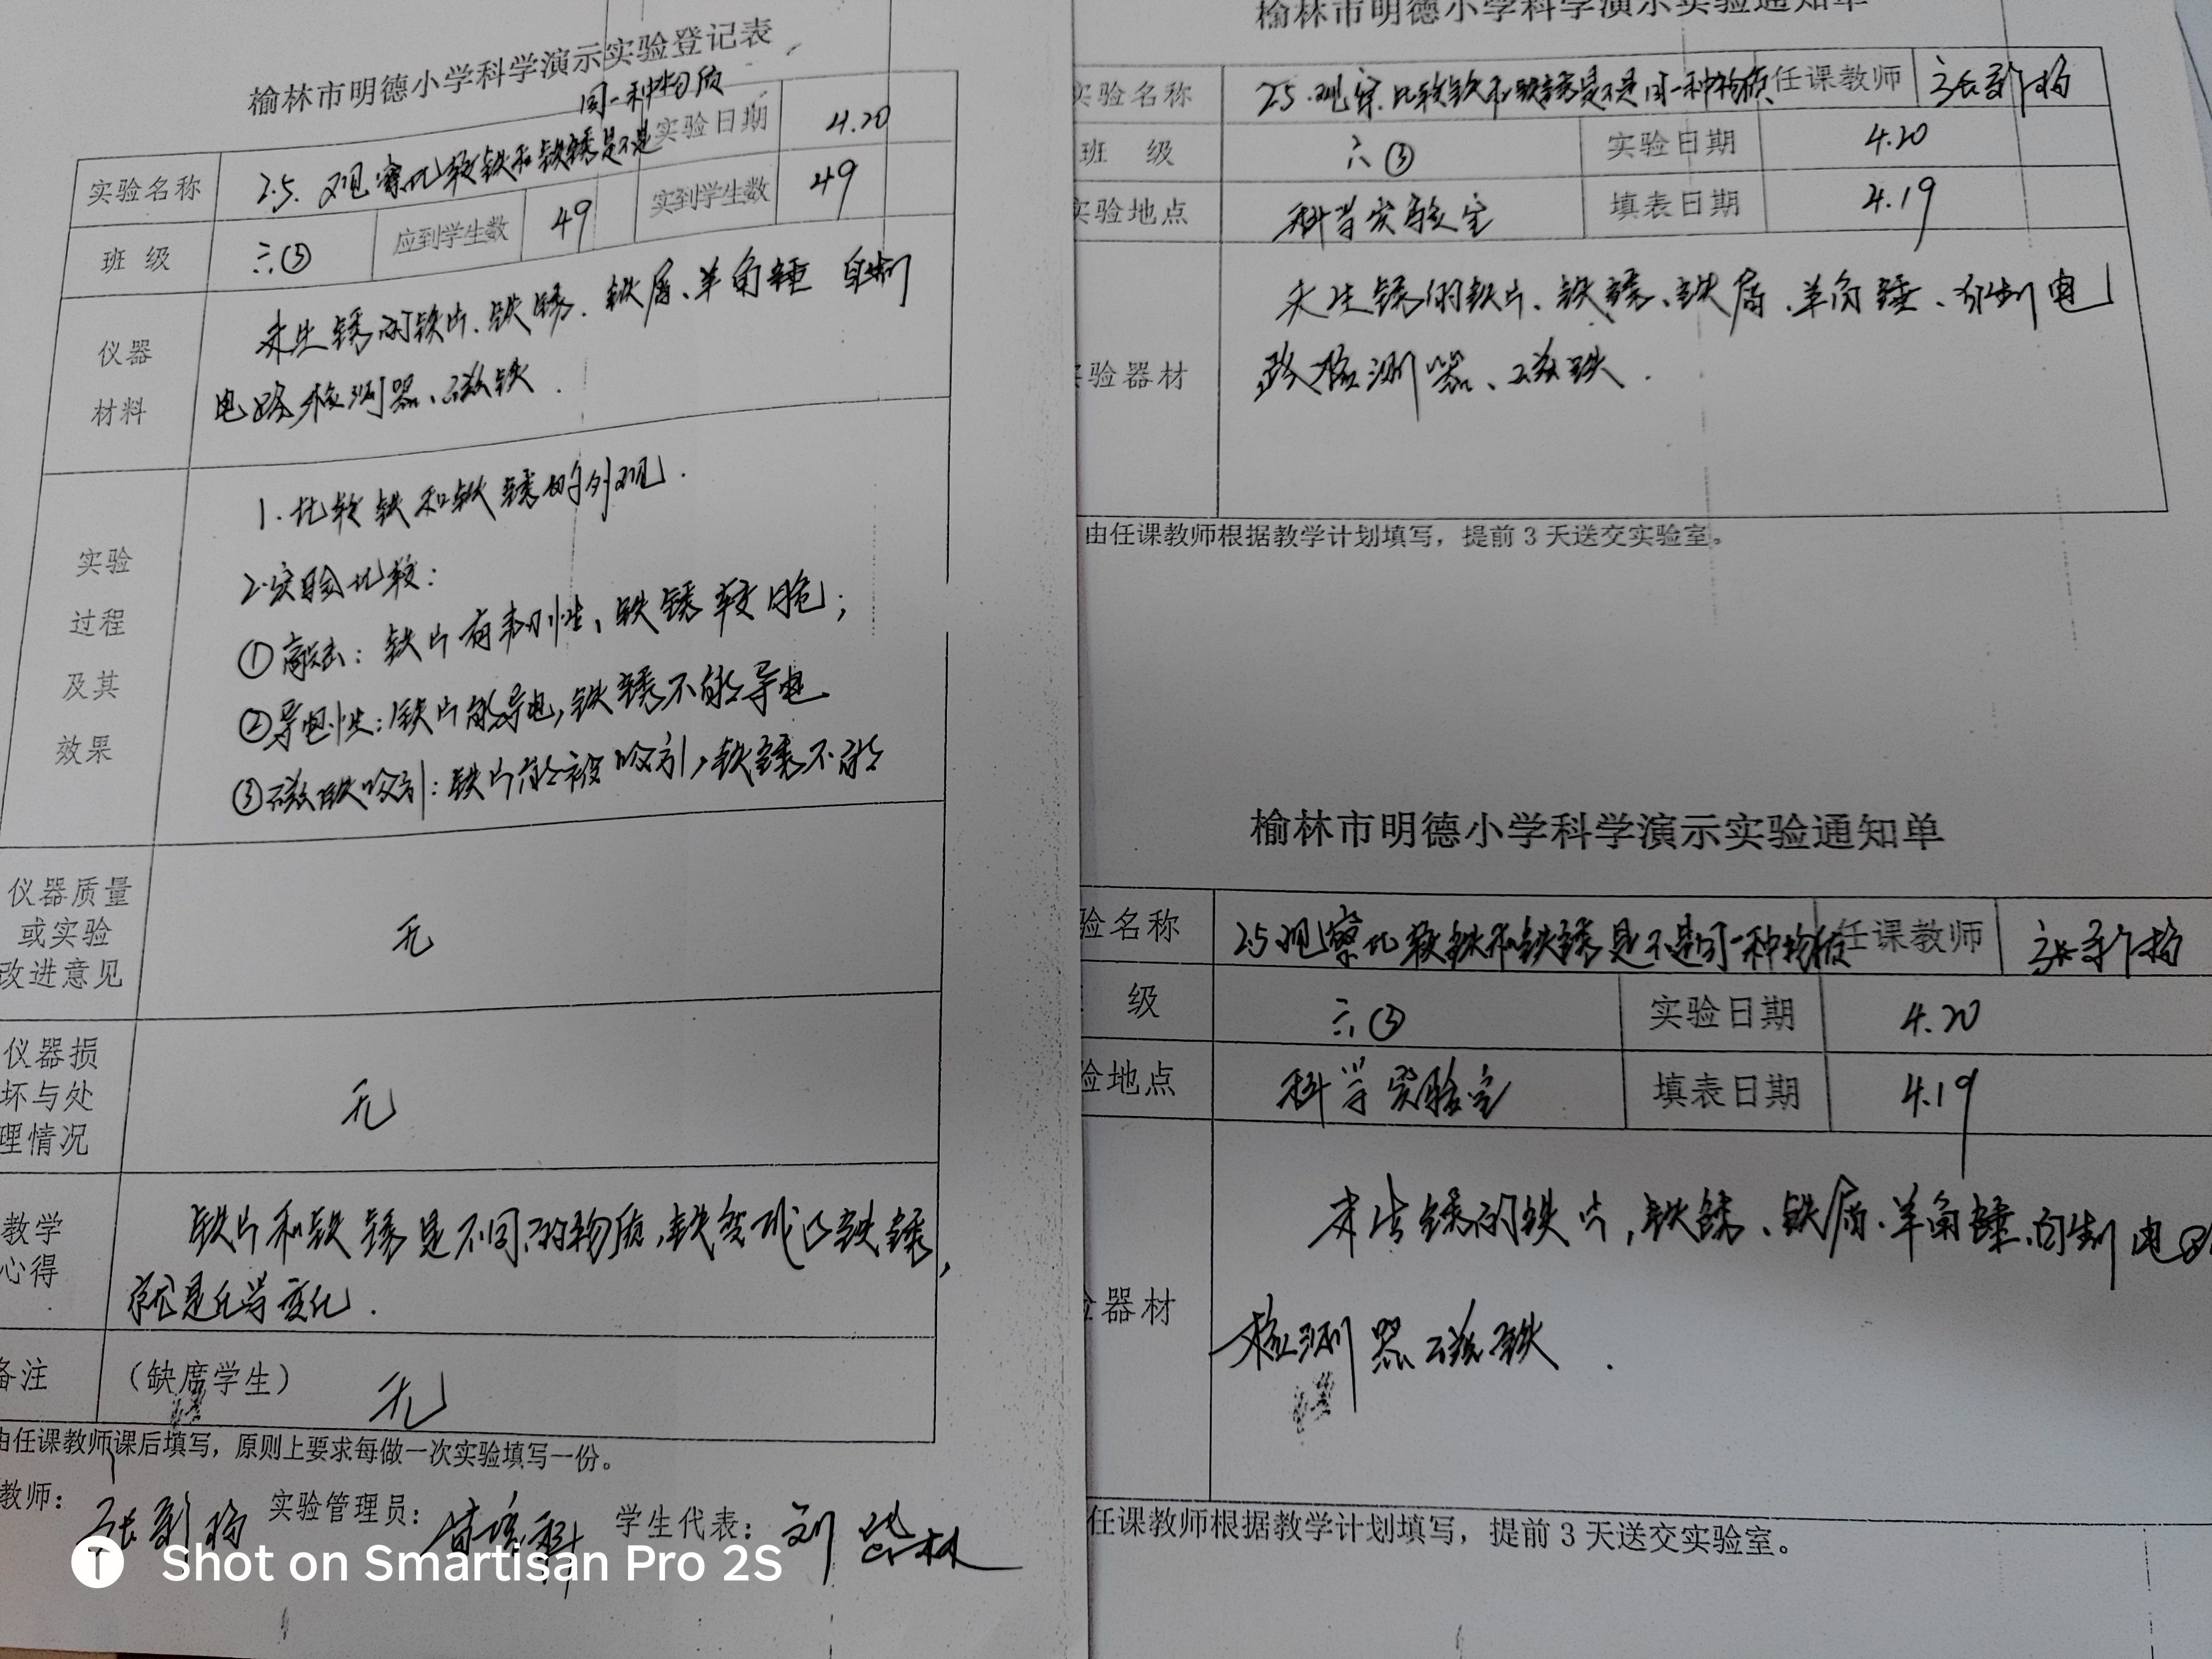 榆林市明德小学科学演示实验登记表
同一种物质
实验名称 2.5.观察比较铁和铁锈是不是 实验日期 4.20
班 级 六③ 应到学生数 49 实到学生数 49
仪器
材料
未生锈的铁片、铁锈、铁屑、羊角锤 自制
电路检测器、磁铁.
实验
过程
及其
效果
1.比较铁和铁锈的外观.
2.实验比较:
①敲击:铁片有韧性、铁锈较脆;
②导电性:铁片能导电,铁锈不能导电
③磁铁吸引:铁片能被吸引,铁锈不能
仪器质量
或实验
改进意见
无
仪器损
坏与处
理情况
无
教学
心得
铁片和铁锈是不同的物质,铁变成了铁锈,
就是化学变化.
备注 (缺席学生) 无
由任课教师课后填写,原则上要求每做一次实验填写一份。
教师: 实验管理员: 学生代表: 刘
Shot on Smartisan Pro 2S
榆林市明德小学科学演示实验通知单
实验名称 2.5.观察.比较铁和铁锈是不是同一种物质 任课教师 张
班 级 六③ 实验日期 4.20
实验地点 科学实验室 填表日期 4.19
实验器材
未生锈的铁片、铁锈、铁屑、羊角锤、自制电
路检测器、磁铁.
由任课教师根据教学计划填写,提前3天送交实验室。
榆林市明德小学科学演示实验通知单
验名称 2.5观察比较铁和铁锈是不是同一种物质 任课教师 张
级 六③ 实验日期 4.20
验地点 科学实验室 填表日期 4.19
器材
未生锈的铁片,铁锈、铁屑、羊角锤、自制电路
检测器磁铁.
任课教师根据教学计划填写,提前3天送交实验室。